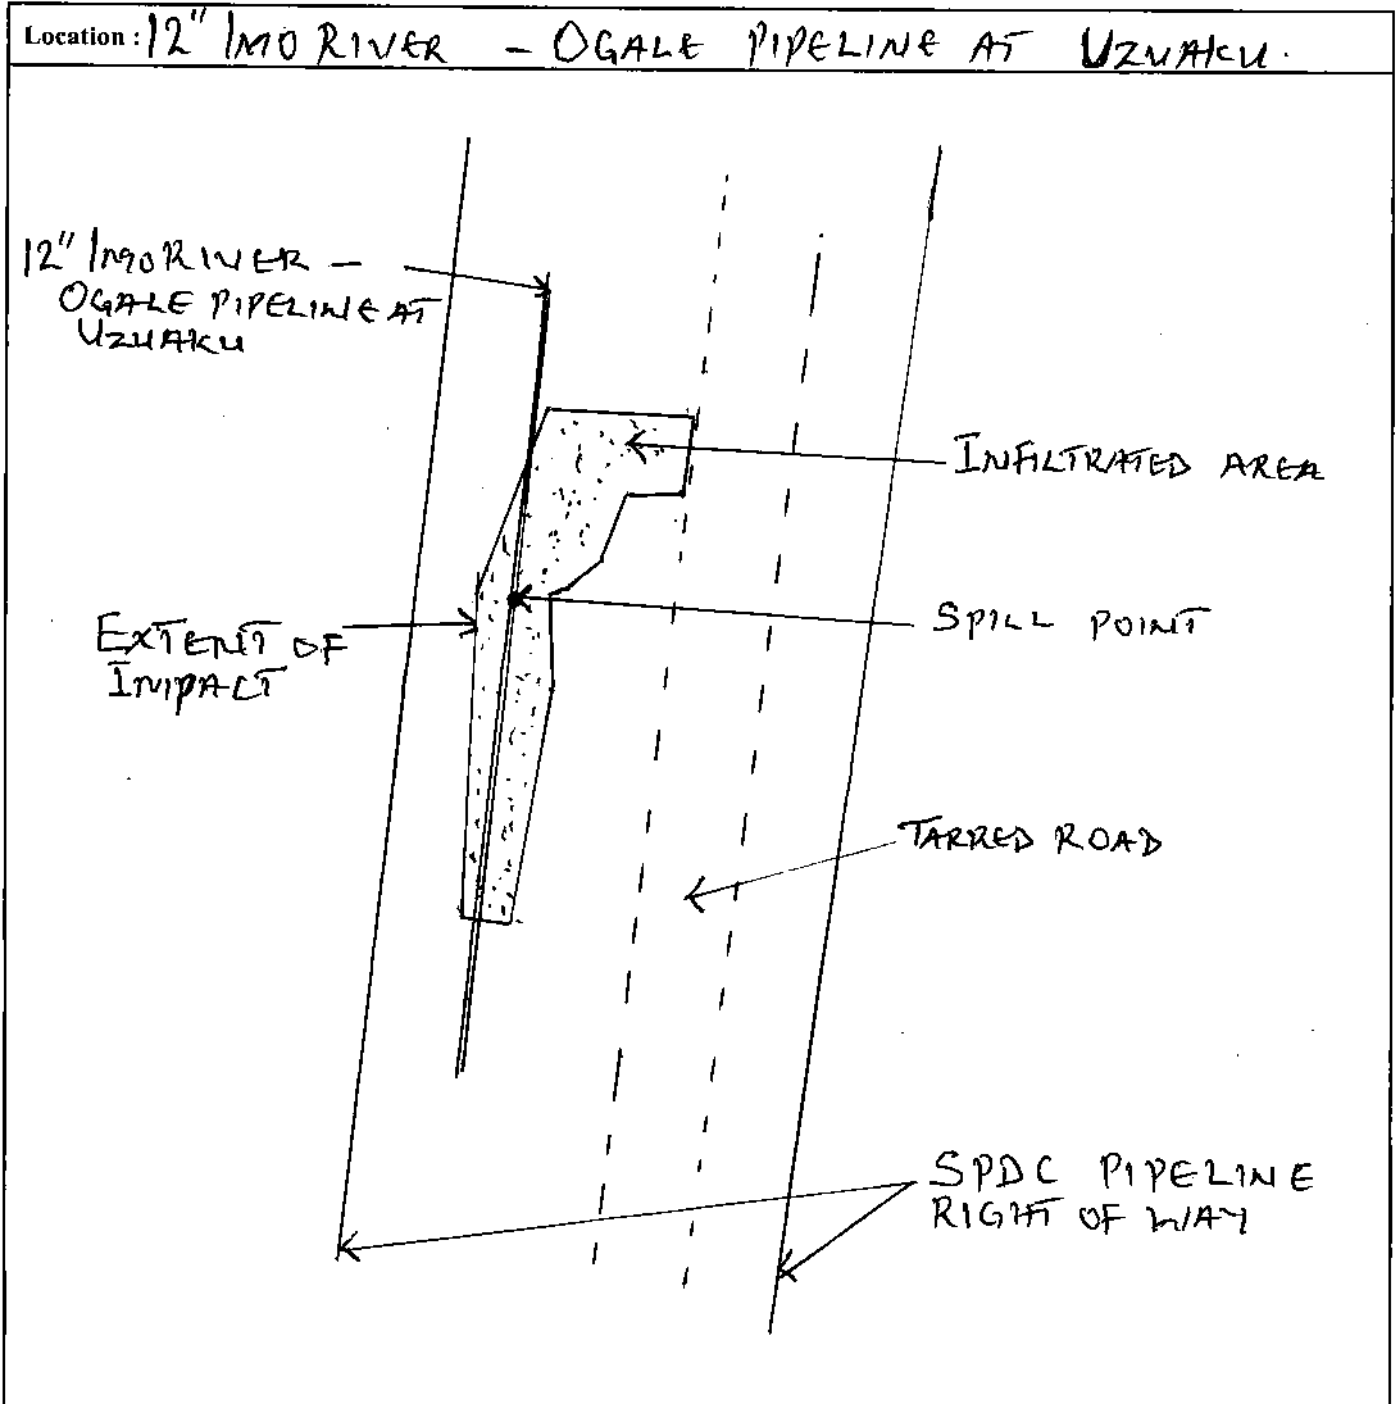 Location : 12" IMO RIVER - OGALE PIPELINE AT UZUAKU.
12" IMO RIVER -
OGALE PIPELINE AT
UZUAKU
INFILTRATED AREA
EXTENT OF
IMPACT
SPILL POINT
TARRED ROAD
SPDC PIPELINE
RIGHT OF WAY